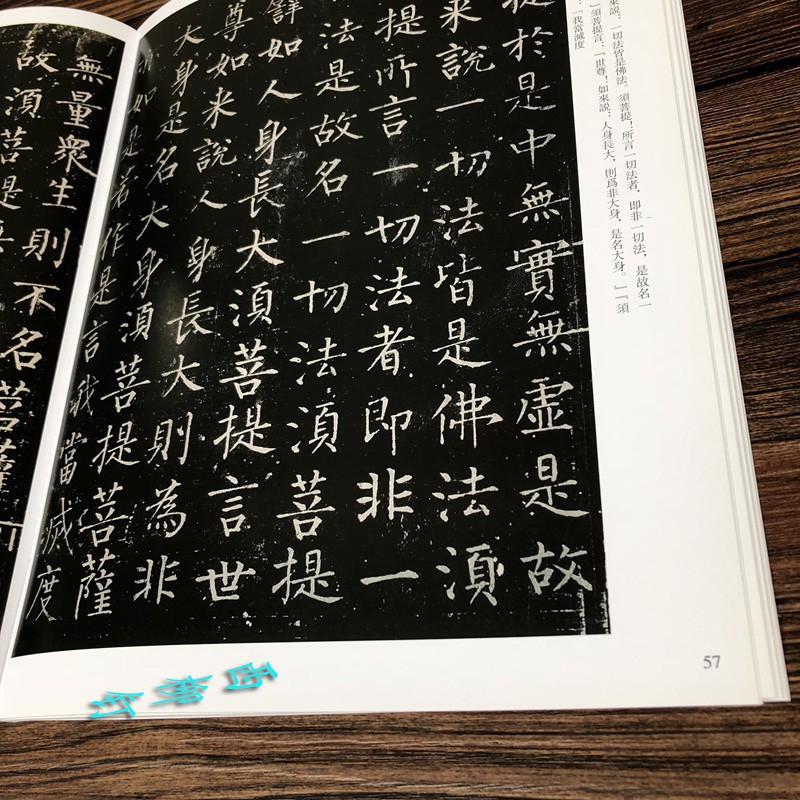 來說：一切法皆是佛法。須菩提！所言一切法者，即非一切法，是故名一
』須菩提言：『世尊！如來說：人身長大，則爲非大身，是名大身。』『須
：『我當滅度
提於是中無實無虛是故
来說一切法皆是佛法湏
提所言一切法者即非一
法是故名一切法湏菩提
譬如人身長大湏菩提言世
尊如来說人身長大則為非
大身是名大身湏菩提菩薩
亦如是若作是言我當滅度
無量衆生則不名菩薩
故湏菩提
57